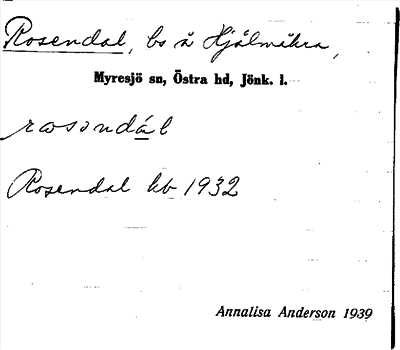 Rosendal, bs å Hjälmåkra,
Myresjö sn, Östra hd, Jönk. l.
rωsəndá̱l
Rosendal kb 1932
Annalisa Anderson 1939